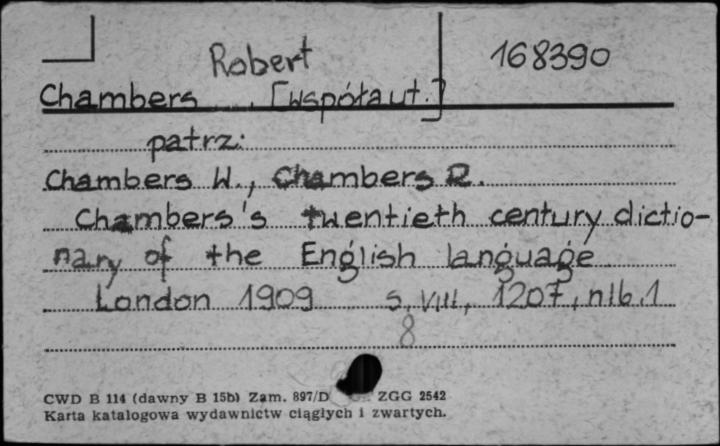 Robert 168390
Chambers , [współaut.]
patrz:
Chambers W., Chambers R.
Chambers's twentieth century dictio-
nary of the English language
London 1909 s. VIII, 1207, nlb. 1
8
CWD B 114 (dawny B 15b) Zam. 897/D ZGG 2542
Karta katalogowa wydawnictw ciągłych i zwartych.